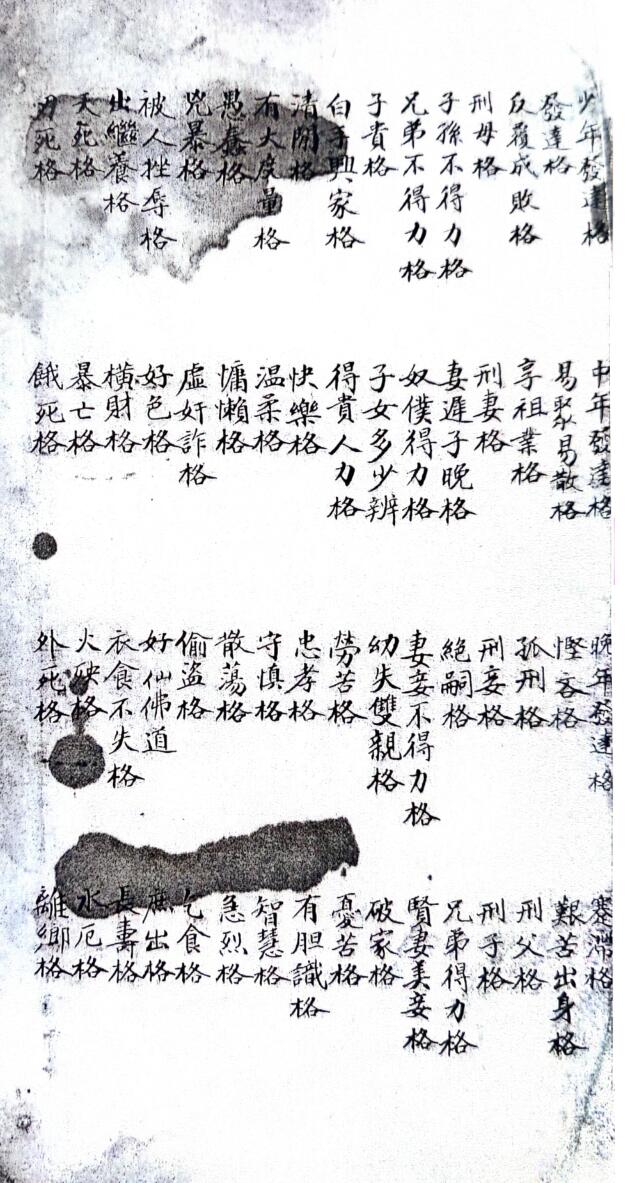 少年發達格
中年發達格
晚年發達格
蹇滯格
發達格
易聚易散格
慳吝格
艱苦出身格
反覆成敗格
享祖業格
孤刑格
刑父格
刑母格
刑妻格
刑妾格
刑子格
子孫不得力格
妻遲子晚格
絕嗣格
兄弟得力格
兄弟不得力格
奴僕得力格
妻妾不得力格
賢妻美妾格
子貴格
子女多少辨
幼失雙親格
破家格
白手興家格
得貴人力格
勞苦格
憂苦格
清閒格
快樂格
忠孝格
有胆識格
有大度量格
温柔格
守慎格
智慧格
愚蠢格
慵懶格
散蕩格
急烈格
兇暴格
虛奸詐格
偷盜格
乞食格
被人挫辱格
好色格
好仙佛道
庶出格
出繼養格
橫財格
衣食不失格
長壽格
夭死格
暴亡格
火殃格
水厄格
刃死格
餓死格
外死格
離鄉格